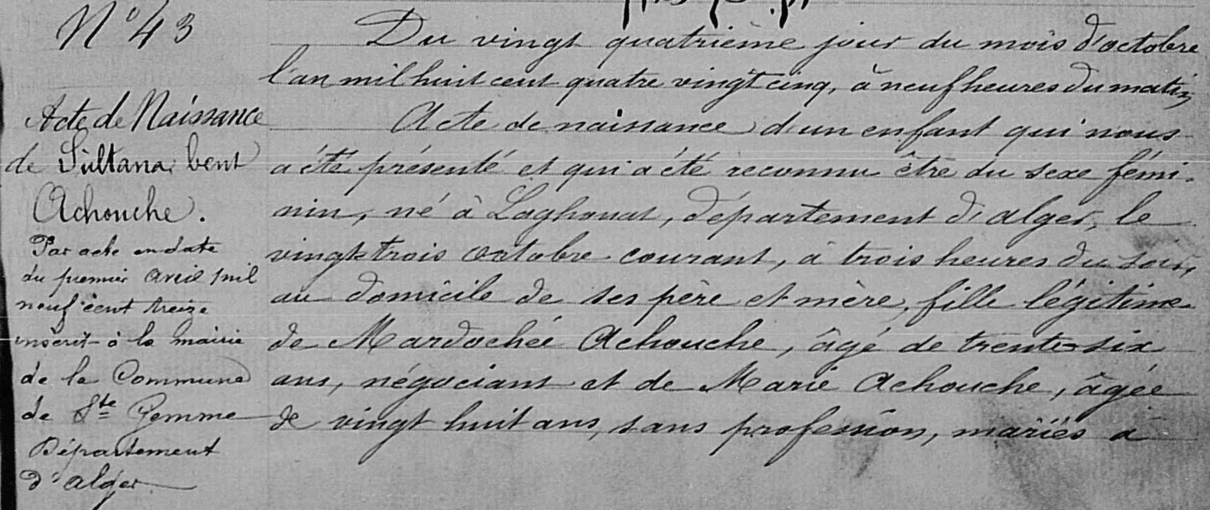 N° 43
Acte de Naissance
de Sultana bent
Achouche.
Par acte en date
du premier avril mil
neuf cent treize
inscrit à la mairie
de la Commune
de Ste Gemme
Département
d'alger
Du vingt quatrième jour du mois d'octobre
l'an mil huit cent quatre vingt cinq, à neuf heures du matin
Acte de naissance d'un enfant qui nous
a été présenté et qui a été reconnu être du sexe fémi-
nin, né à Laghouat, département d'alger, le
vingt trois octobre courant, à trois heures du soir,
au domicile de ses père et mère, fille légitime
de Mardochée Achouche, âgé de trente-six
ans, négociant et de Marie Achouche, âgée
de vingt huit ans, sans profession, mariés à